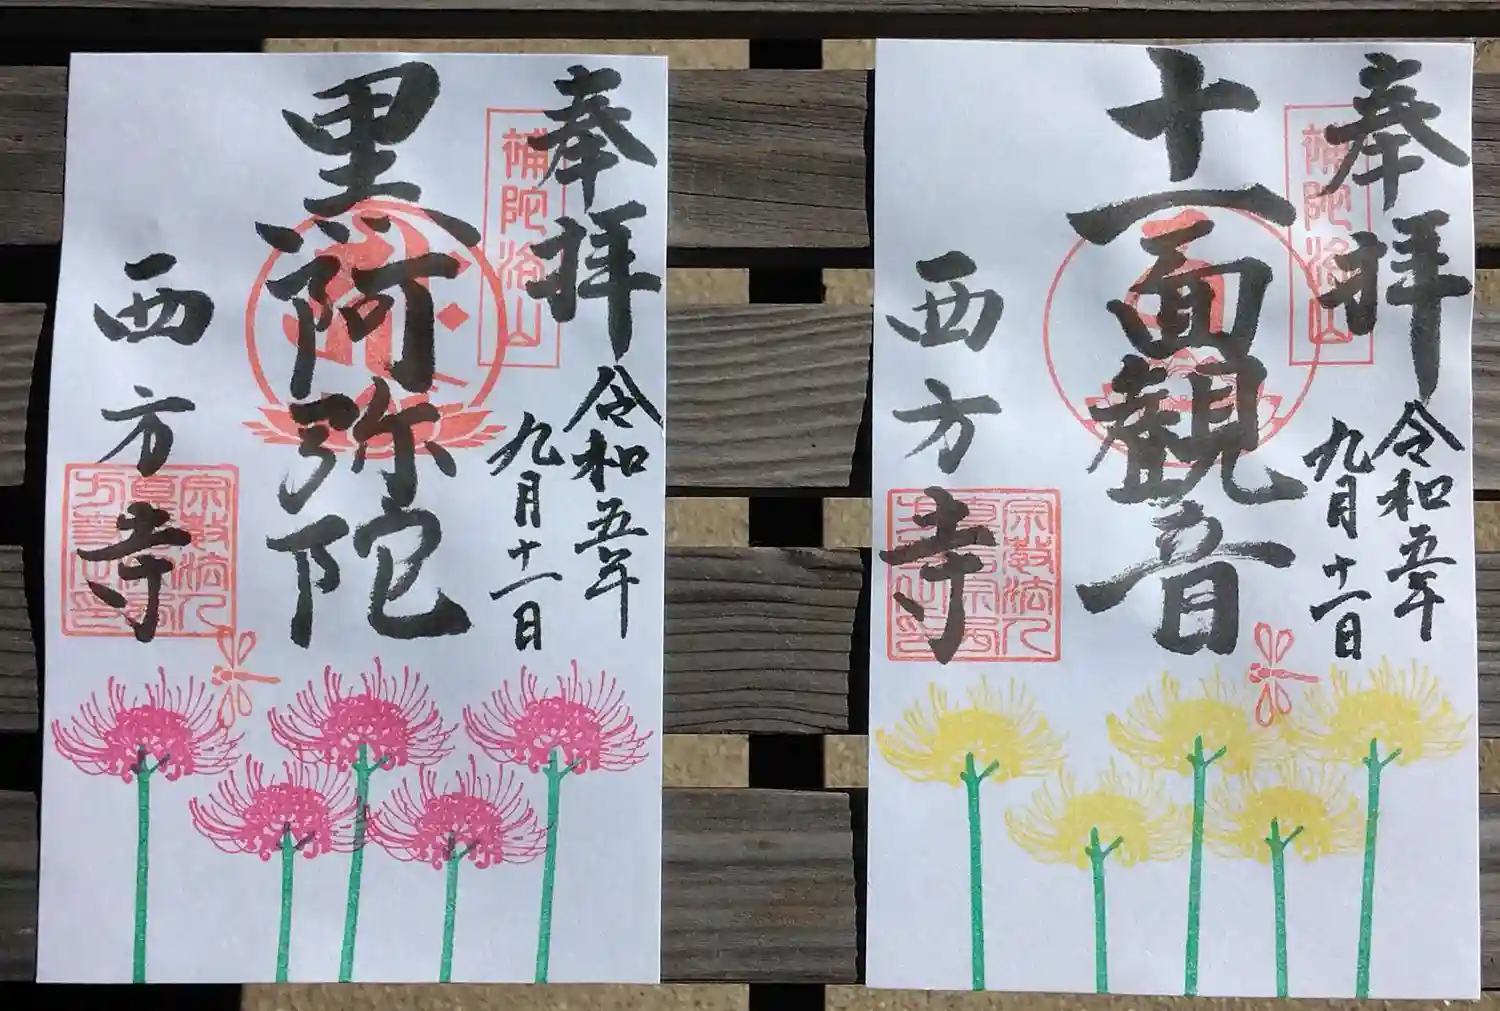 奉拝
補陀洛山
令和五年
九月十一日
黒阿弥陀
西方寺
奉拝
補陀洛山
令和五年
九月十一日
十一面観音
西方寺
宗教法人